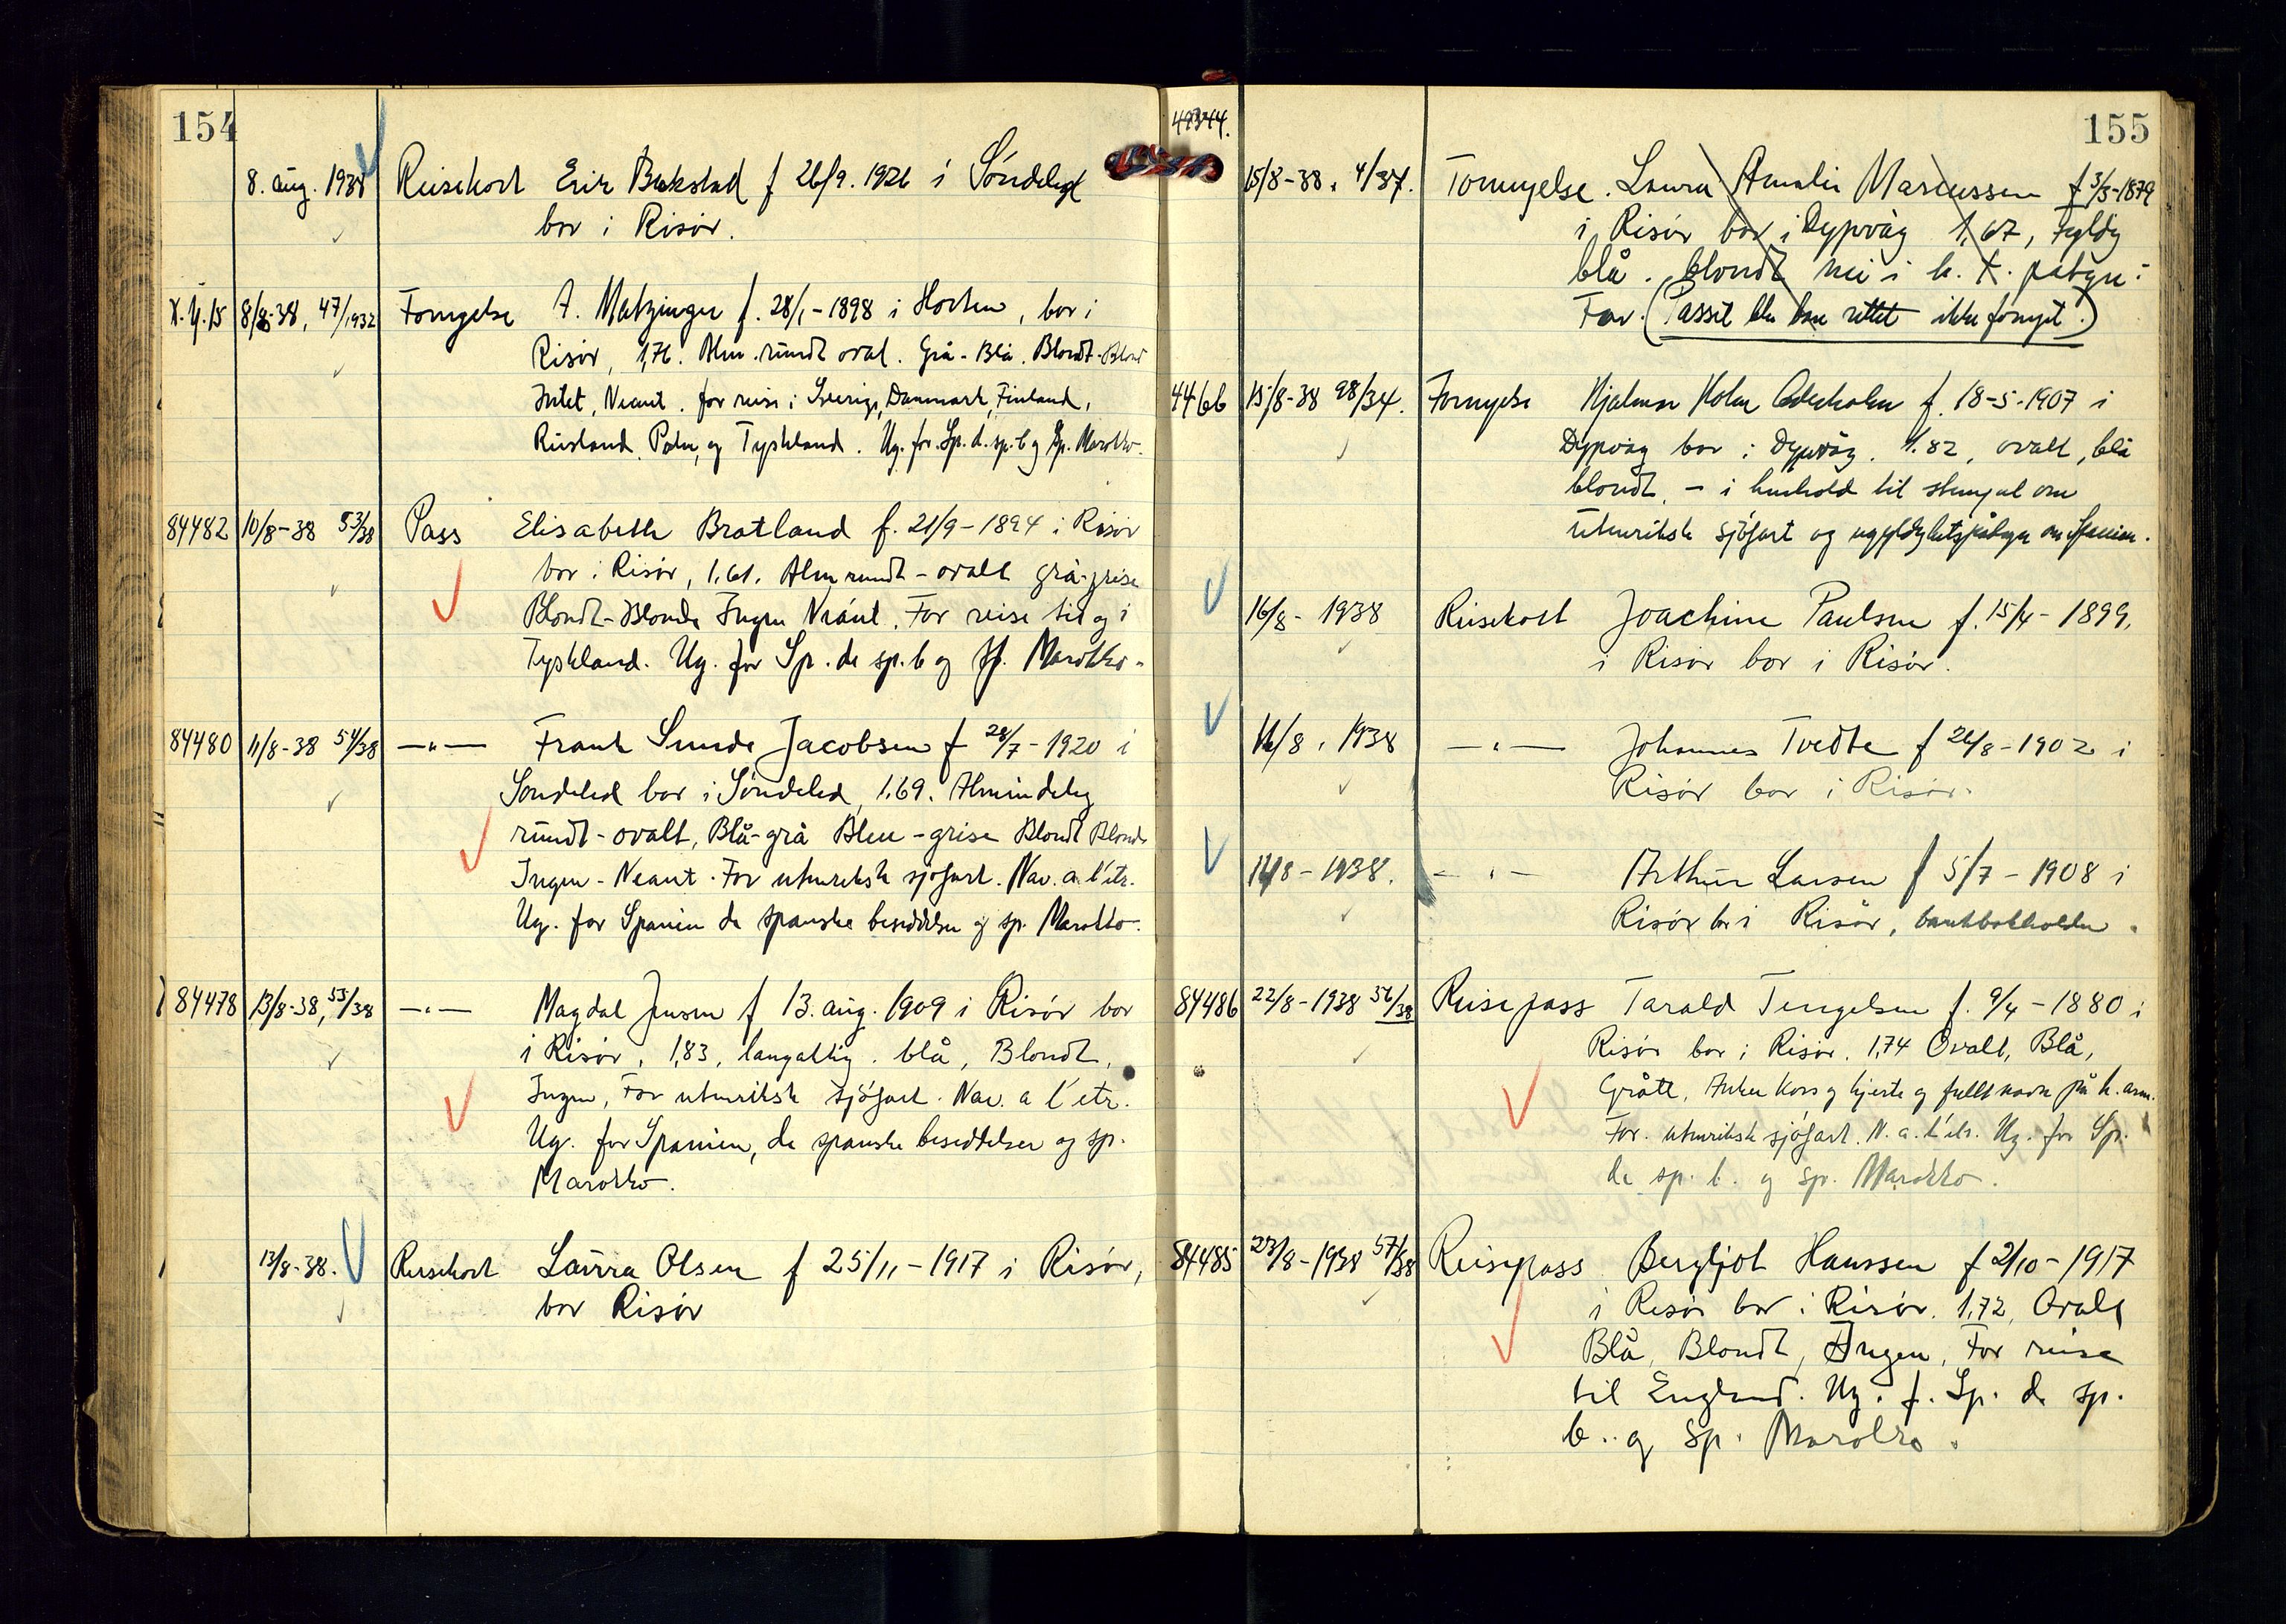 154
8. aug. 1938 Reisekort Erik Bakstad f 26/9. 1926 i Søndeled
bor i Risør.
X.Y.15 8/8-38, 47/1932 Fornyelse A. Matzinger f. 28/1-1898 i Horten, bor i
Risør, 1,76. Alm. rundt oval. Grå-Blå. Blondt-Blond
Intet, Neant. for reise i Sverige, Danmark, Finland,
Rusland, Polen, og Tyskland. Ug. for Sp. d. sp. b og Sp. Marokko.
84482 10/8-38 53/38 Pass Elisabeth Bratland f. 21/9-1894 i Risør
bor i Risør, 1,61. Alm rundt-ovalt grå-grise
Blondt-Blonde Ingen Néant. For reise til og i
Tyskland. Ug. for Sp. de sp. b og sp. Marokko-
84480 11/8-38 54/38 —"— Frank Sunde Jacobsen f 28/7-1920 i
Søndeled bor i Søndeled, 1.69. Almindelig
rundt-ovalt, Blå-grå Bleu-grise Blondt Blonde
Ingen-Neant. For utenriksk sjøfart. Nav. a l'etr.
Ug. for Spanien de spanske besiddelser og sp. Marokko-
84478 13/8-38, 55/38 —"— Magdal Jensen f 13. aug. 1909 i Risør bor
i Risør, 1,83, langaktig. blå, Blondt,
Ingen, For utenriksk sjøfart. Nav. a l'etr.
Ug. for Spanien, de spanske besiddelser og sp.
Marokko.
13/8-38. Reisekort Laura Olsen f 25/11-1917 i Risør,
bor Risør
49344.
155
15/8-38. 4/37. Fornyelse. Laura Amalie Marcussen f 3/3-1879
i Risør bor i Dypvåg 1,67, Fyldig
blå. blondt på
For. (Passet ble bare rettet ikke fornyet.)
4466 15/8-38 98/34. Fornyelse Hjalmar Holm f. 18-5-1907 i
Dypvåg bor i Dypvåg. 1.82, ovalt, blå
blondt, - i henhold til stempel om
utenriksk sjøfart og ugyldighetspåtegn om Spanien.
16/8-1938 Reisekort Joachim Paulsen f. 15/4-1899.
i Risør bor i Risør.
16/8. 1938 —"— Johannes Tvedte f 26/8-1902 i
Risør bor i Risør.
/8-1938. —"— Arthur Larsen f 5/7-1908 i
Risør bor i Risør, bankbokholder.
84486 22/8-1938 56/38 Reisepass Tarald Tengelsen f. 9/4-1880 i
Risør bor i Risør. 1,74 Ovalt, Blå,
Grått, Anker kors og hjerte og fullt navn på h. arm.
For. utenriksk sjøfart. N. a. l'etr. Ug. for Sp.
de sp. b. og sp. Marokko.
84485 23/8-1938 57/38 Reisepass Bergljot Hanssen f 2/10-1917
i Risør bor i Risør. 1,72, Ovalt
Blå, Blondt, Ingen, For reise
til England. Ug. f. Sp. d. sp.
b.. og sp. Marokko.